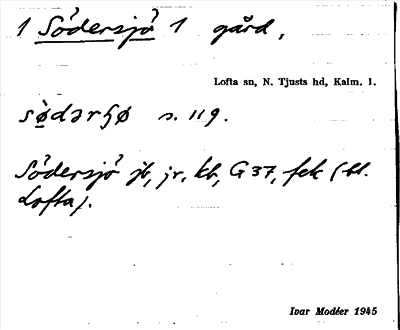 1 Södersjö 1 gård,
Lofta sn, N. Tjusts hd, Kalm. l.
s. 119.
Södersjö jb, jr, kb, G 37, fek (bl.
Lofta).
Ivar Modéer 1945